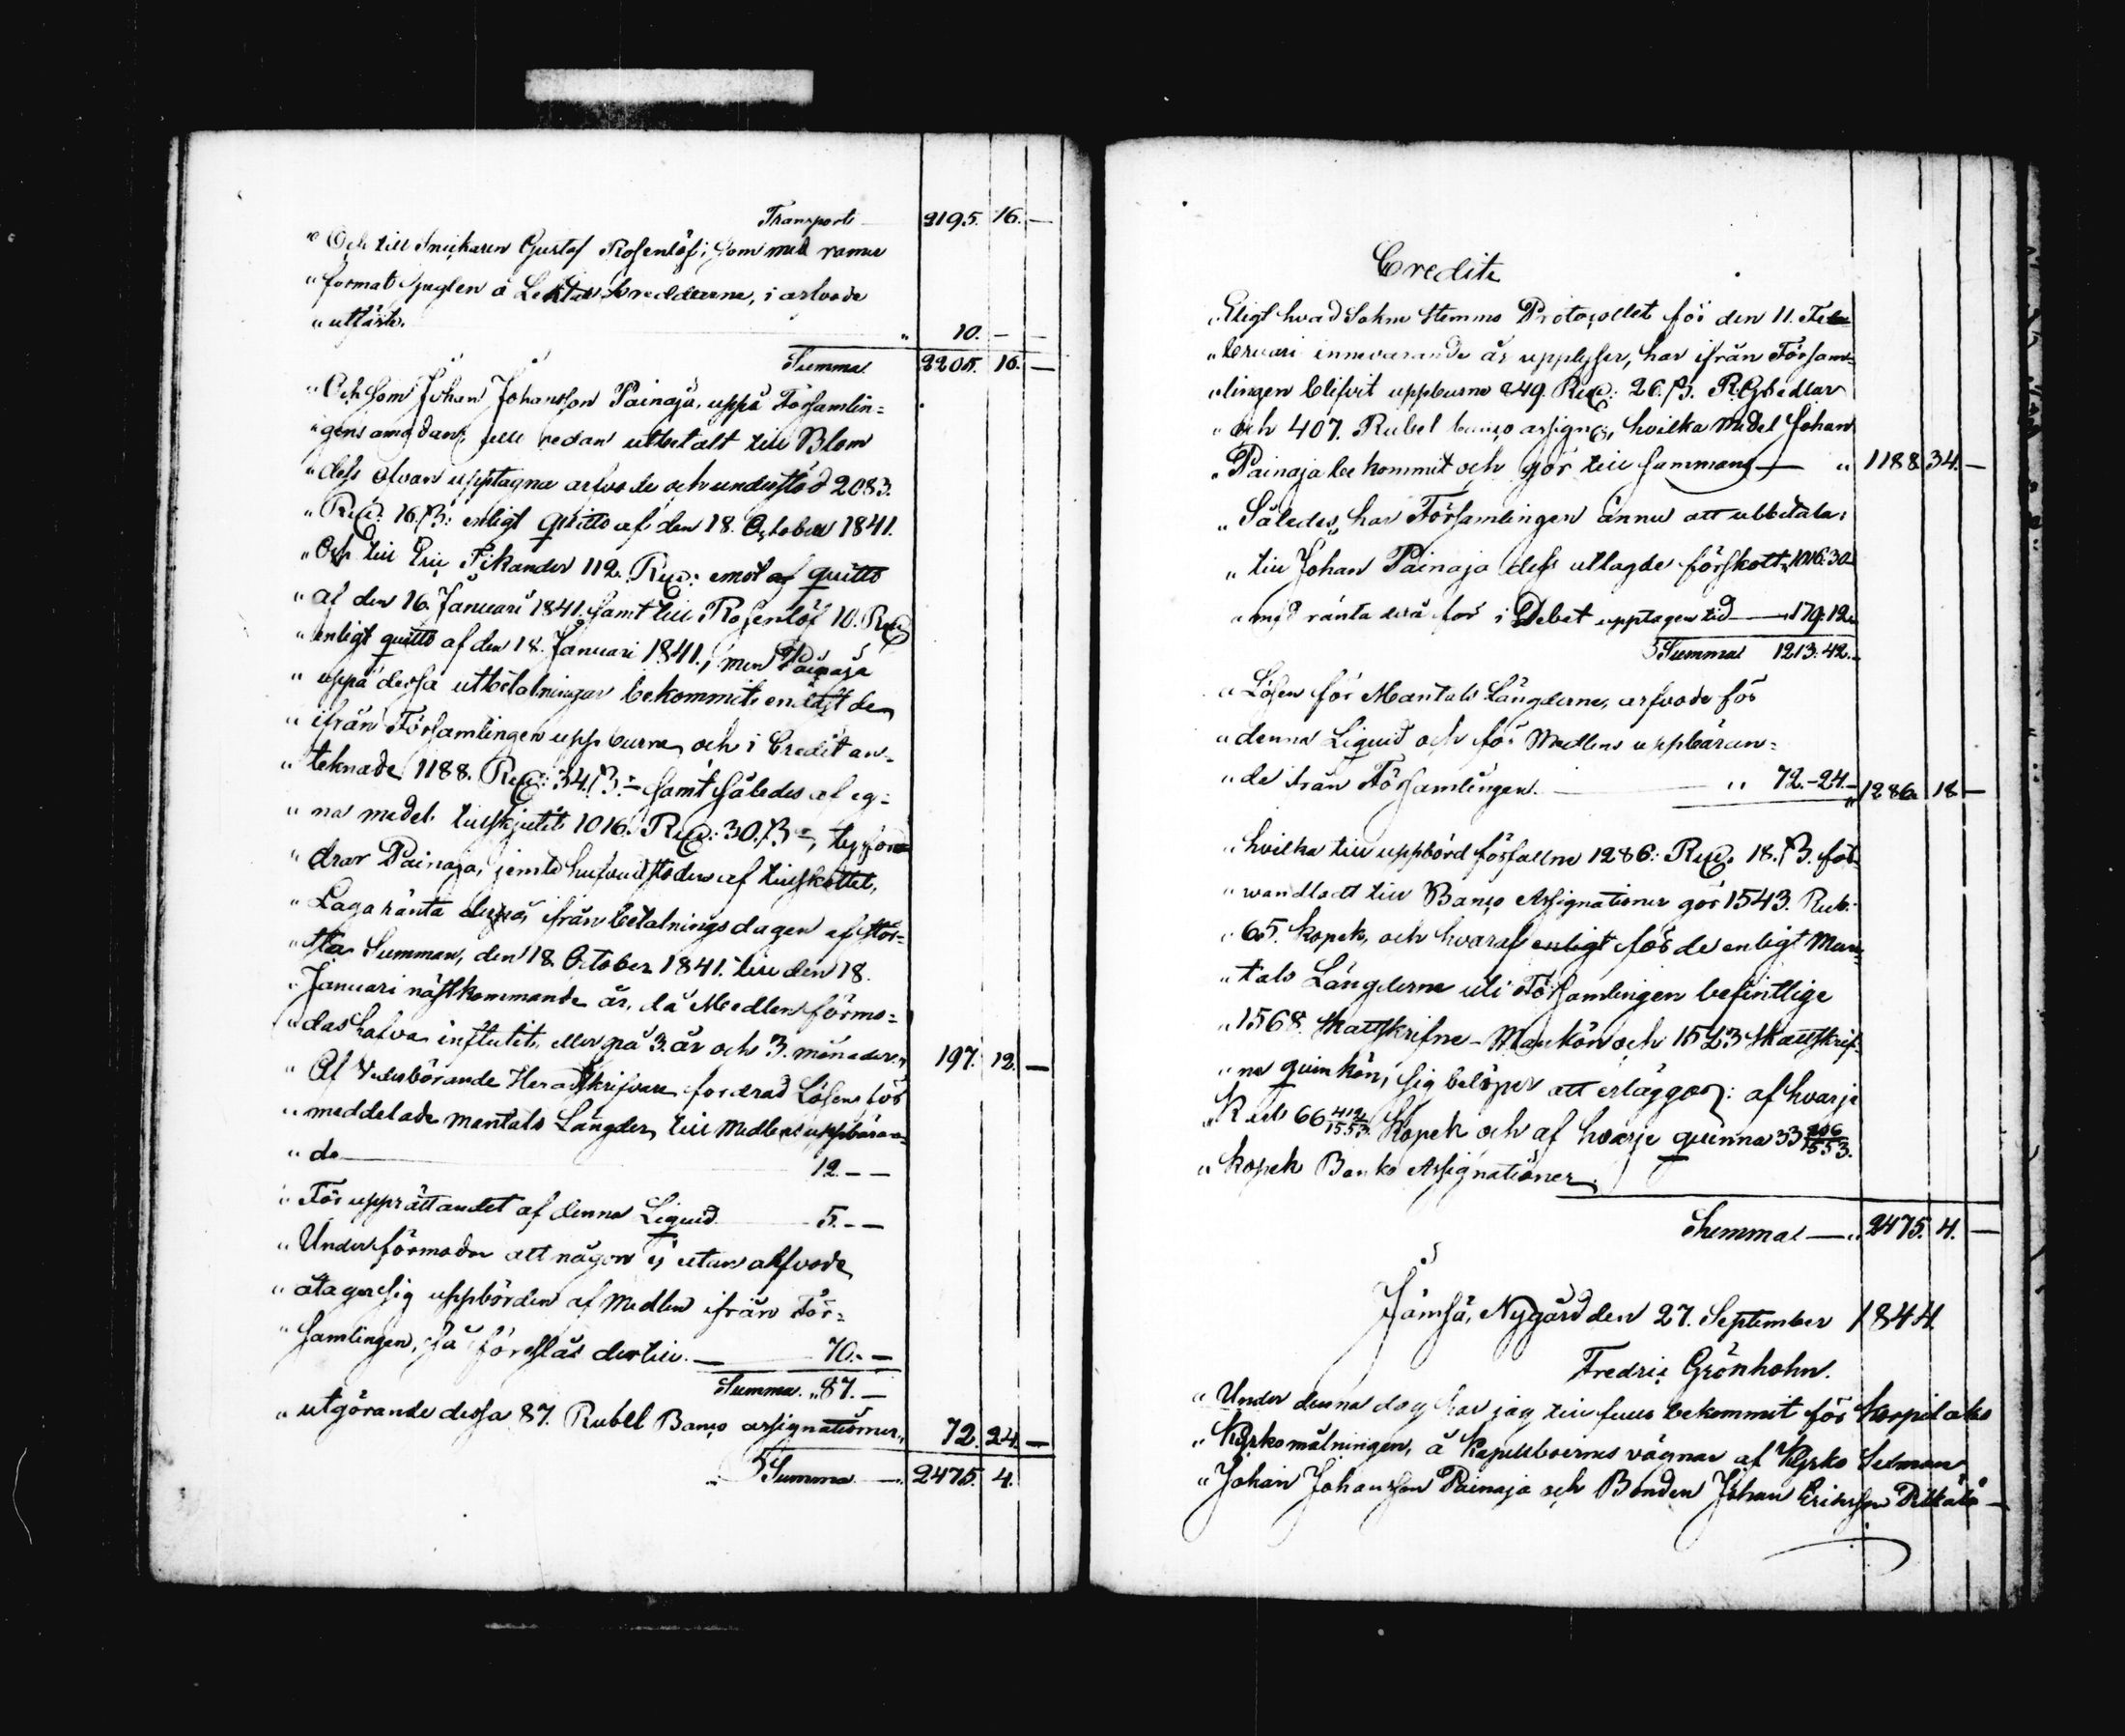 Transport 2195. 16. —
" Och till Snickaren Gustaf Rosenlöf, som med ramar
" format speglen å Lektar bredderne, i arfvode
" utfäste. " 10. — —
Summa 2205. 16. —
" Och som Johan Johansson Painaja, uppå Församlin=
" gens redan utbetalt till Blom
" dess ofvan upptagna arfvode och understöd 2083.
" R:d: 16. ß: enligt quitto af den 18. October 1841.
" Och till Eric Sikander 112. R:d: emot quitto
" af den 16. Januari 1841. samt till Rosenlöf 10. R:d
" enligt quitto af den 18. Januari 1841., men Painaja
" uppå dessa utbetalningar bekommit endast de
" ifrån Församlingen uppburna och i Credit an=
" teknade 1188. R:d: 34. ß: — samt således af eg=
" na medel tillskjutit 1016. R:d: 30. ß —,
" drar Painaja, jemte hufvudstolen af tillskottet,
" Laga ränta derpå ifrån betalningsdagen af stör=
" sta Summan, den 18. October 1841. till den 18.
" Januari nästkommande år, då Medlen förmo=
" das hafva influtit, eller på 3. år och 3. månader " 197. 12. —
" Af Vederbörande Häradskrifvare fordrad Lösen för
" meddelade mantals Längder, till Medlens uppbäran=
" de — 12. — —
" För upprättandet af denna Liquid 5. — —
" Under förmodan att någon ej utan arfvode
" åtager sig uppbörden af Medlen ifrån För=
" samlingen, så föreslås dertill. — 70. —
Summa. " 87. —
" utgörande dessa 87. Rubel Banco assignationer " 72. 24. —
Summa — 2475. 4.
Credit
" Eligt hvad Sokne Stemmo Protocollet för den 11. Fe
" bruari innevarande år upplyser, har ifrån Försam=
" lingen blifvit uppburne 849. R:d: 26. ß. RGsedlar
" och 407. Rubel banco assigner, hvilka medel Johan
" Painaja bekommit och gör tillsammans — " 1188 34. —
" Således har Församlingen ännu att utbetala
" till Johan Painaja dess utlagde förskott " 1016: 30 —
" med ränta derå för i Debet upptagen tid — " 179: 12 —
Summa 1213: 42. —
" Lösen för Mantals Längderne, arfvode för
" denna Liquid och för Medlens uppbäran=
" de från Församlingen. — " 72. - 24. — " 1286. 18 —
" hvilka till uppbörd förfallne 1286: R:d: 18. ß. för
" wandladt till Banco Assignationer gör 1543. Rub:
" 65. kopek, och hvaraf enligt för de enligt Man=
" tals Längderne uti Församlingen befintlige
" 1568. skattskrifne Mankön och 1523 skattskrif=
" ne quinkön, sig belöper att erlägga: af hvarje
" Karl 66 412/1553 kopek och af hvarje quinna 33 206/1553.
" kopek Banko Assignationer
Summa — " 2475. 4. —
Jämsä, Nygård den 27. September 1844.
Fredric Grönholm.
" Under denna dag har jag till fullo bekommit för Korpilaks
" Kyrkomålningen, å Kapellboernes vägnar af Kyrko Sexman
" Johan Johansson Painaja och Bonden Johan Ericsson